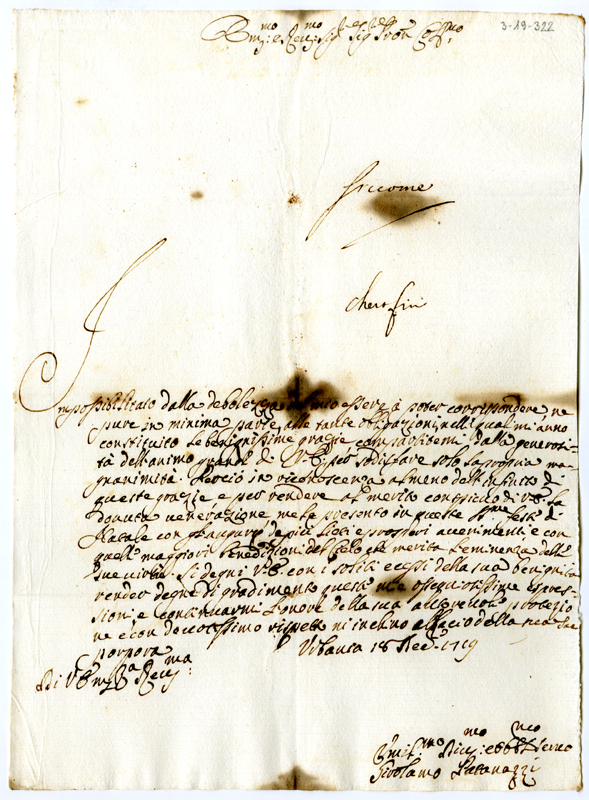 3-19-322
Em:mo e Re:mo Sig:re Sig:re Pron Col:mo
siccome
Impossibilitato dalla debolezza mio essere à poter corrispondere, ne
pure in minima parte alle tante obligazioni, nelli quali mi anno
constituito le benignissime grazie compartitemi dalla generosi-
tà dell'animo grande di V:E: per sodisfare solo la propria ma-
gnanimità. Perciò in riconoscenza almeno dell'infinito di
queste grazie e per rendere al merito conspicuo di V:E: la
dovuta venerazione me le presento in queste SS:me feste di
Natale con gl'auguri de più lieti e prosperi avvenimenti e con
quelle maggiori benedizioni del Cielo che merita l'eminenza delle
sue virtù. Si degni V:E: con i soliti eccessi della sua benignità
render degne di gradimento queste mie ossequiosissime espres-
sioni e continuarmi l'onore della sua autorevole protezio
ne e con divotissimo rispetto m'inchino al bacio della sacra
porpora
Di V:E: Re:ma
18 Xbre 1719
Umil:mo Div:mo
Girolamo